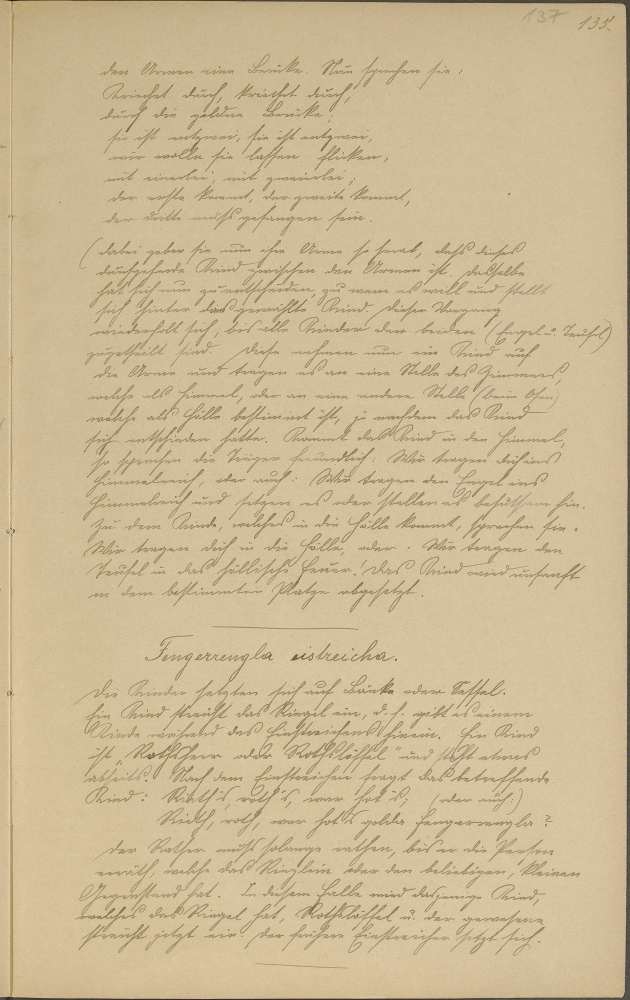 137 135.
den Armen eine Brücke. Nun sprechen sie:
Kriechet durch, kriechet durch,
durch die goldne Brücke;
sie ist entzwei, sie ist entzwei,
wir wolln sie lassen flicken,
mit einerlei, mit zweierlei;
der erste kommt, der zweite kommt,
der dritte muss gefangen sein.
(dabei geben sie nun ihre Arme so herab, dass dieses
durchgehende Kind zwischen den Armen ist. Dasselbe
hat sich nun zu entscheiden, zu wem es will und stellt
sich hinter das gewählte Kind. Dieser Vorgang
wiederholt sich, bis alle Kinder den beiden (Engel u. Teufel)
zugetheilt sind. Diese nehmen nun ein Kind auf
die Arme und tragen es an eine Stelle des Zimmers,
welche als Himmel, oder an eine andere Stelle (beim Ofen)
welche als Hölle bestimmt ist, je nachdem das Kind
sich entschieden hatte. Kommt das Kind in den Himmel,
so sprechen die Träger freundlich: Wir tragen dich ins
Himmelreich, oder auch: Wir tragen den Engel ins
Himmelreich und setzen es oder stellen es behutsam hin.
Zu dem Kinde, welches in die Hölle kommt, sprechen sie:
Wir tragen dich in die Hölle, oder: Wir tragen den
Teufel in das höllische Feuer! Das Kind wird unsanft
an dem bestimmten Platze abgesetzt.
Fengerrengla eistreicha.
Die Kinder setzten sich auf Bänke oder Sessel.
Ein Kind streicht das Ringel ein, d. h. gibt es einem
Kinde während des Einstreichens hinein. Ein Kind
ist "Rothsherr oder Rothslöffel" und steht etwas
abseits. Nach dem Einstreichen fragt das betreffende
Kind: Rieth's, roth's, wer hot's, (oder auch:)
Rieth, roth, wer hot's golda Fengerrengla?
Der Rather muss solange rathen, bis er die Person
erräth, welche das Ringlein oder den beliebigen, kleinen
Gegenstand hat. In diesem Falle wird dasjenige Kind,
welches das Ringel hat, Rothslöffel u. der gewesene
streicht jetzt ein. Der frühere Einstreicher setzt sich.